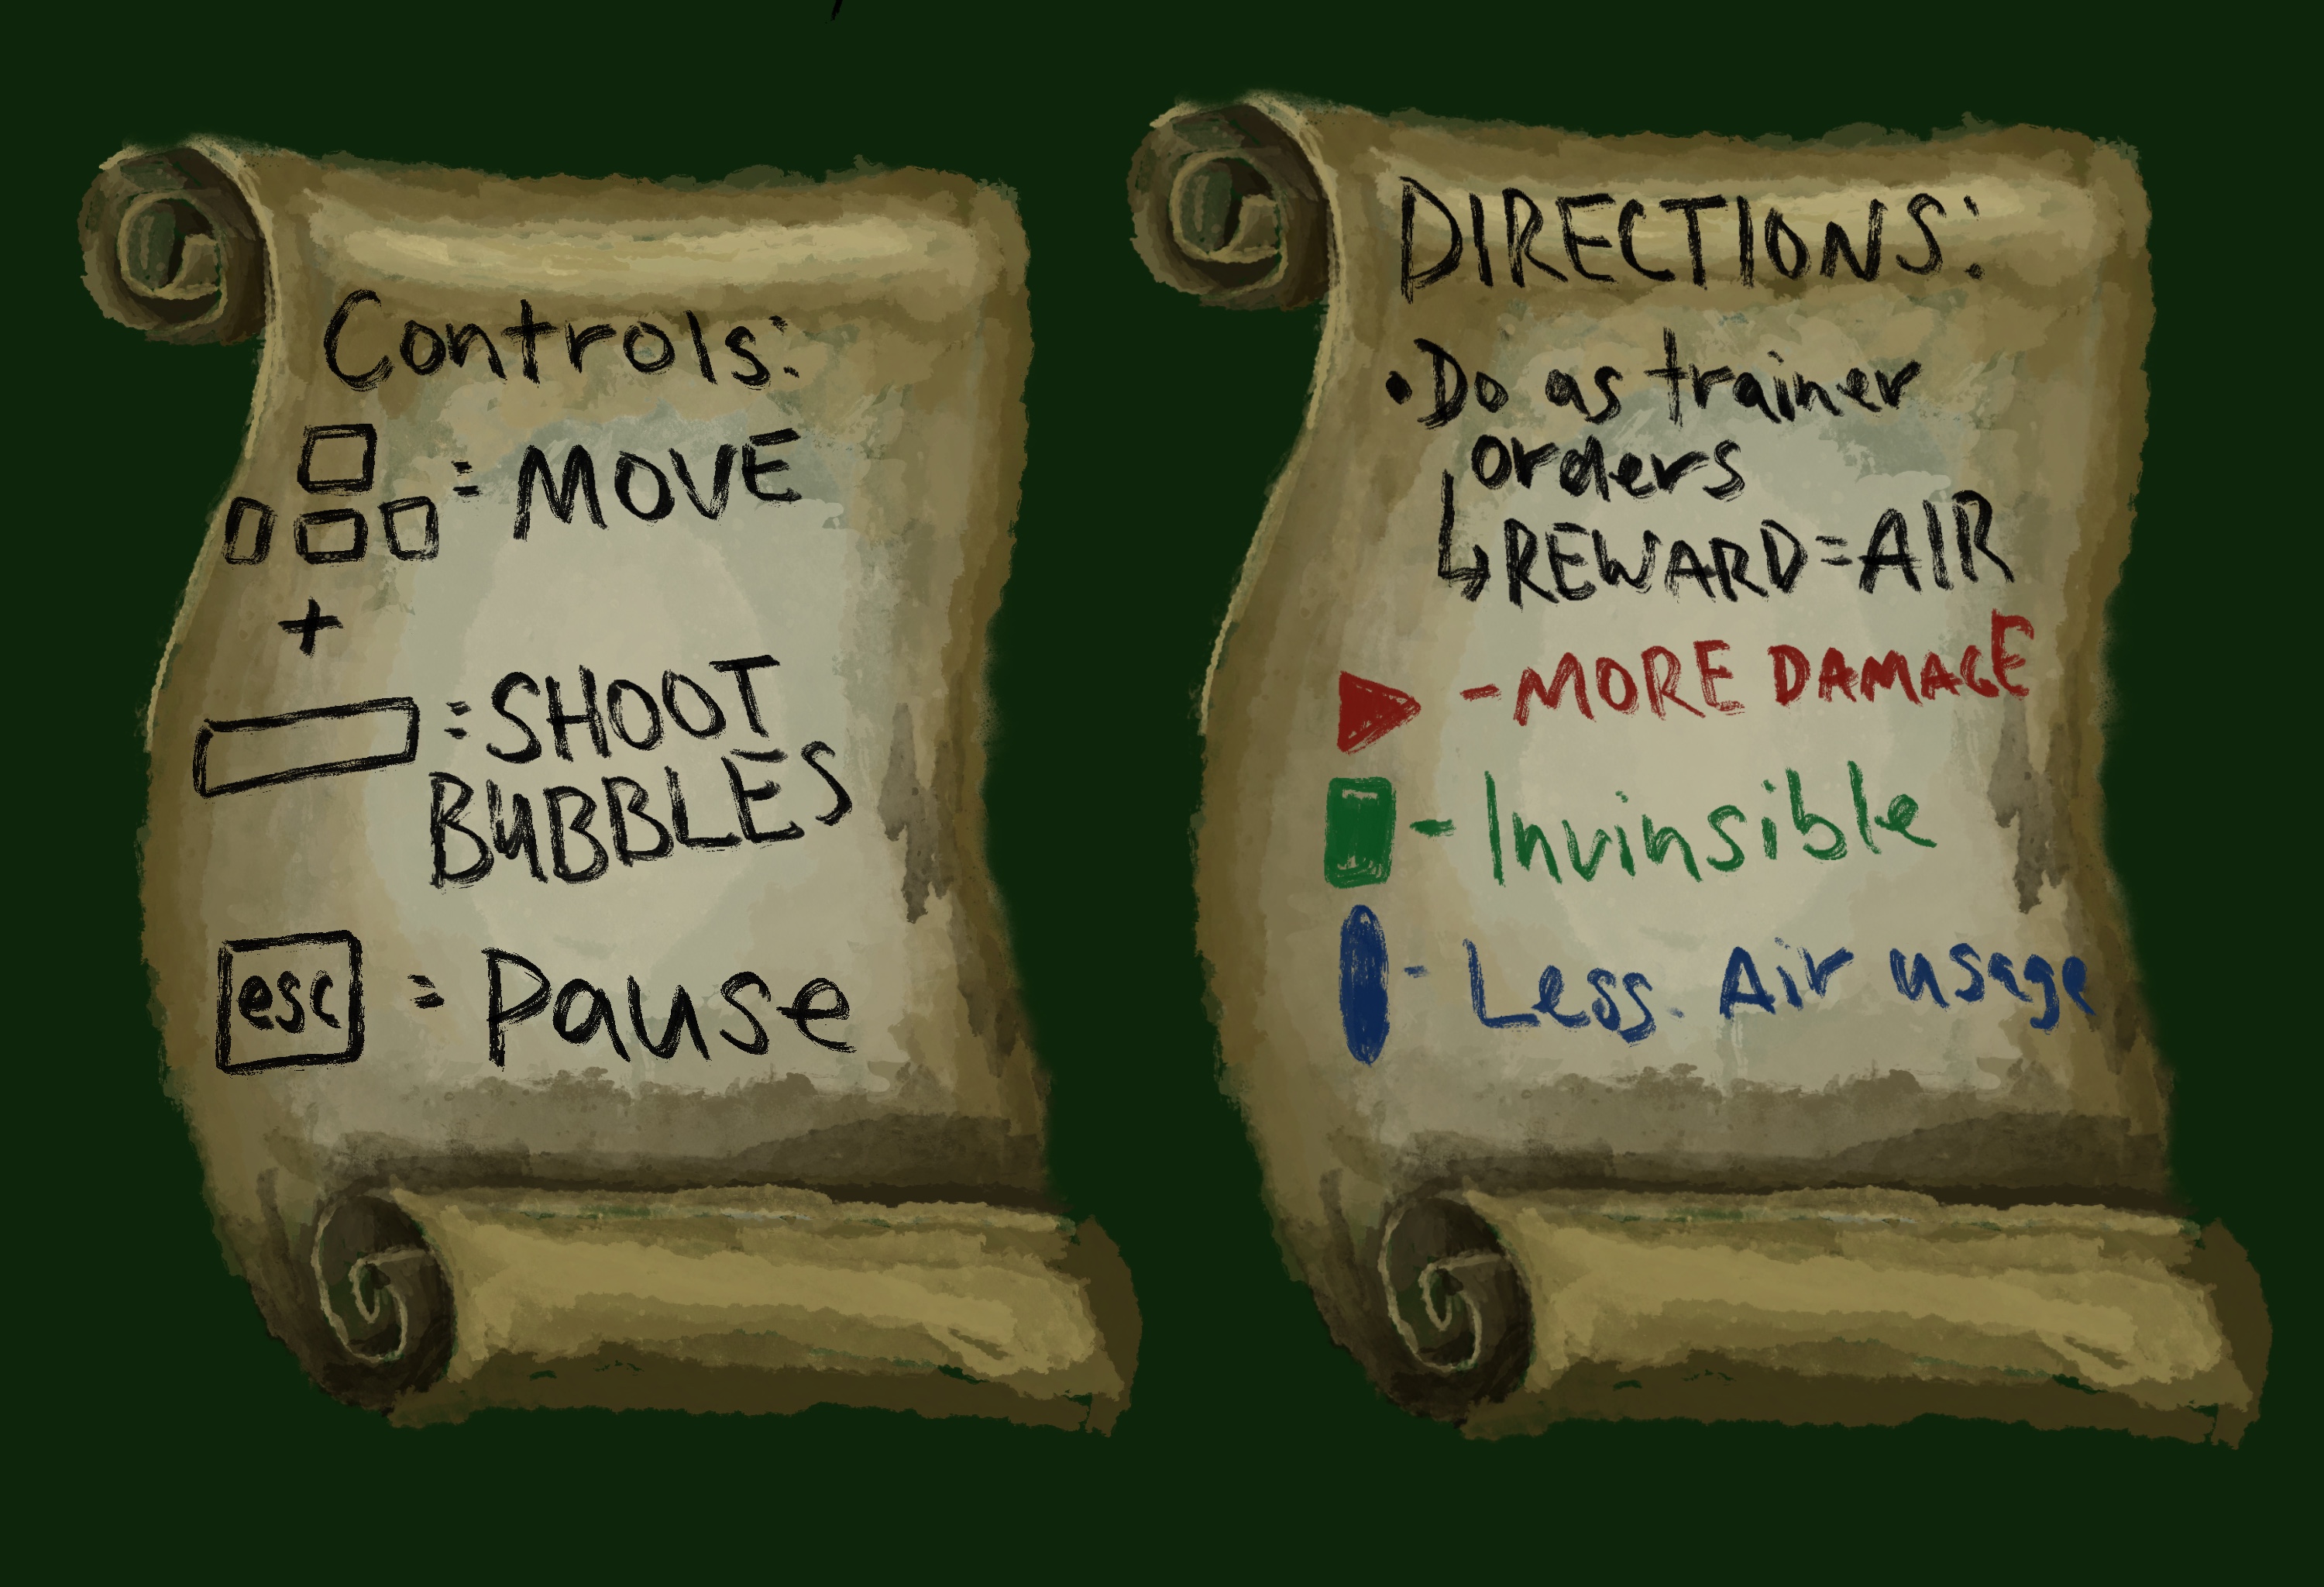 Controls:
= MOVE
+
= SHOOT
BUBBLES
esc = Pause
DIRECTIONS:
• Do as trainer
orders
↳ REWARD = AIR
- MORE DAMAGE
- Invinsible
- Less Air usage